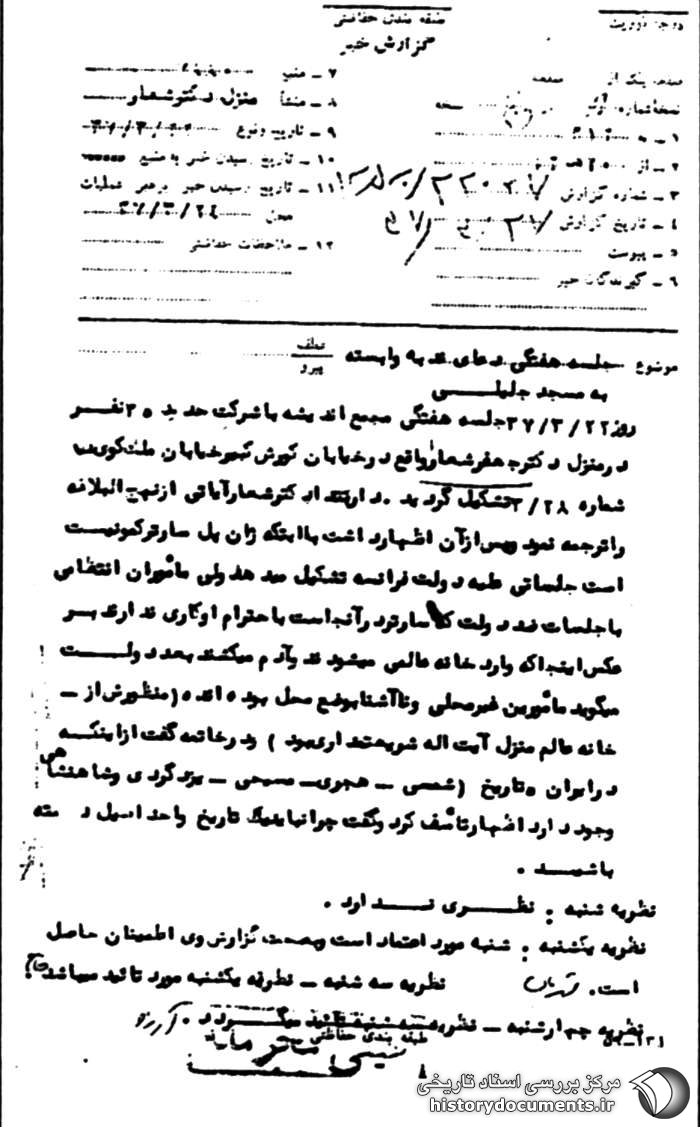 طبقه بندی حفاظتی
درجه فوریت
گزارش خبر
صفحه یک از صفحه
نسخه شماره نسخه
۱ - به
۲ - از
۳ - شماره گزارش
۴ - تاریخ گزارش
۵ - پیوست
۶ - گیرندگان خبر
۷ - منبع
۸ - منشأ منزل دکتر شعار
۹ - تاریخ وقوع
۱۰ - تاریخ رسیدن خبر به منبع
۱۱ - تاریخ رسیدن خبر برهبر عملیات
محل ۳۷/۳/۲۴
۱۲ - ملاحظات حفاظتی
موضوع جلسه هفتگی دعای ندبه وابسته عطف
پیرو
به مسجد جلیلی
روز ۳۷/۳/۲۲ جلسه هفتگی مجمع اندیشه با شرکت حدود ۳۰ نفر
در منزل دکتر جعفر شعار واقع در خیابان کورش کبیر خیابان ملت کوی
شماره ۳/۲۸ تشکیل گردید. در ابتدا دکتر شعار آیاتی از نهج البلاغه
را ترجمه نمود و پس از آن اظهار داشت با اینکه ژان پل سارتر کمونیست
است جلساتی علیه دولت فرانسه تشکیل میدهد ولی مأموران انتظامی
با جلسات ضد دولت که سارتر در آنجاست با احترام او کاری ندارند بر
عکس اینجا که وارد خانه عالمی میشوند و آدم میکشند بعد دولت
میگوید مأمورین غیر محلی و ناآشنا بوضع محل بوده اند (منظورش از -
خانه عالم منزل آیت اله شریعتمداری بود) و در خاتمه گفت از اینکه
در ایران ۵ تاریخ (شمسی - هجری - مسیحی - یزدگردی و شاهنشاهی
وجود دارد اظهار تأسف کرد و گفت چرا نباید یک تاریخ واحد اصیل داشته
باشیم.
نظریه شنبه : نظری ندارد.
نظریه یکشنبه : شنبه مورد اعتماد است و بصحت گزارش وی اطمینان حاصل
است. نظریه سه شنبه - نظریه یکشنبه مورد تائید میباشد
نظریه چهارشنبه - نظریه سه شنبه تائید میگردد.
طبقه بندی حفاظتی
مرکز بررسی اسناد تاریخی
historydocuments.ir